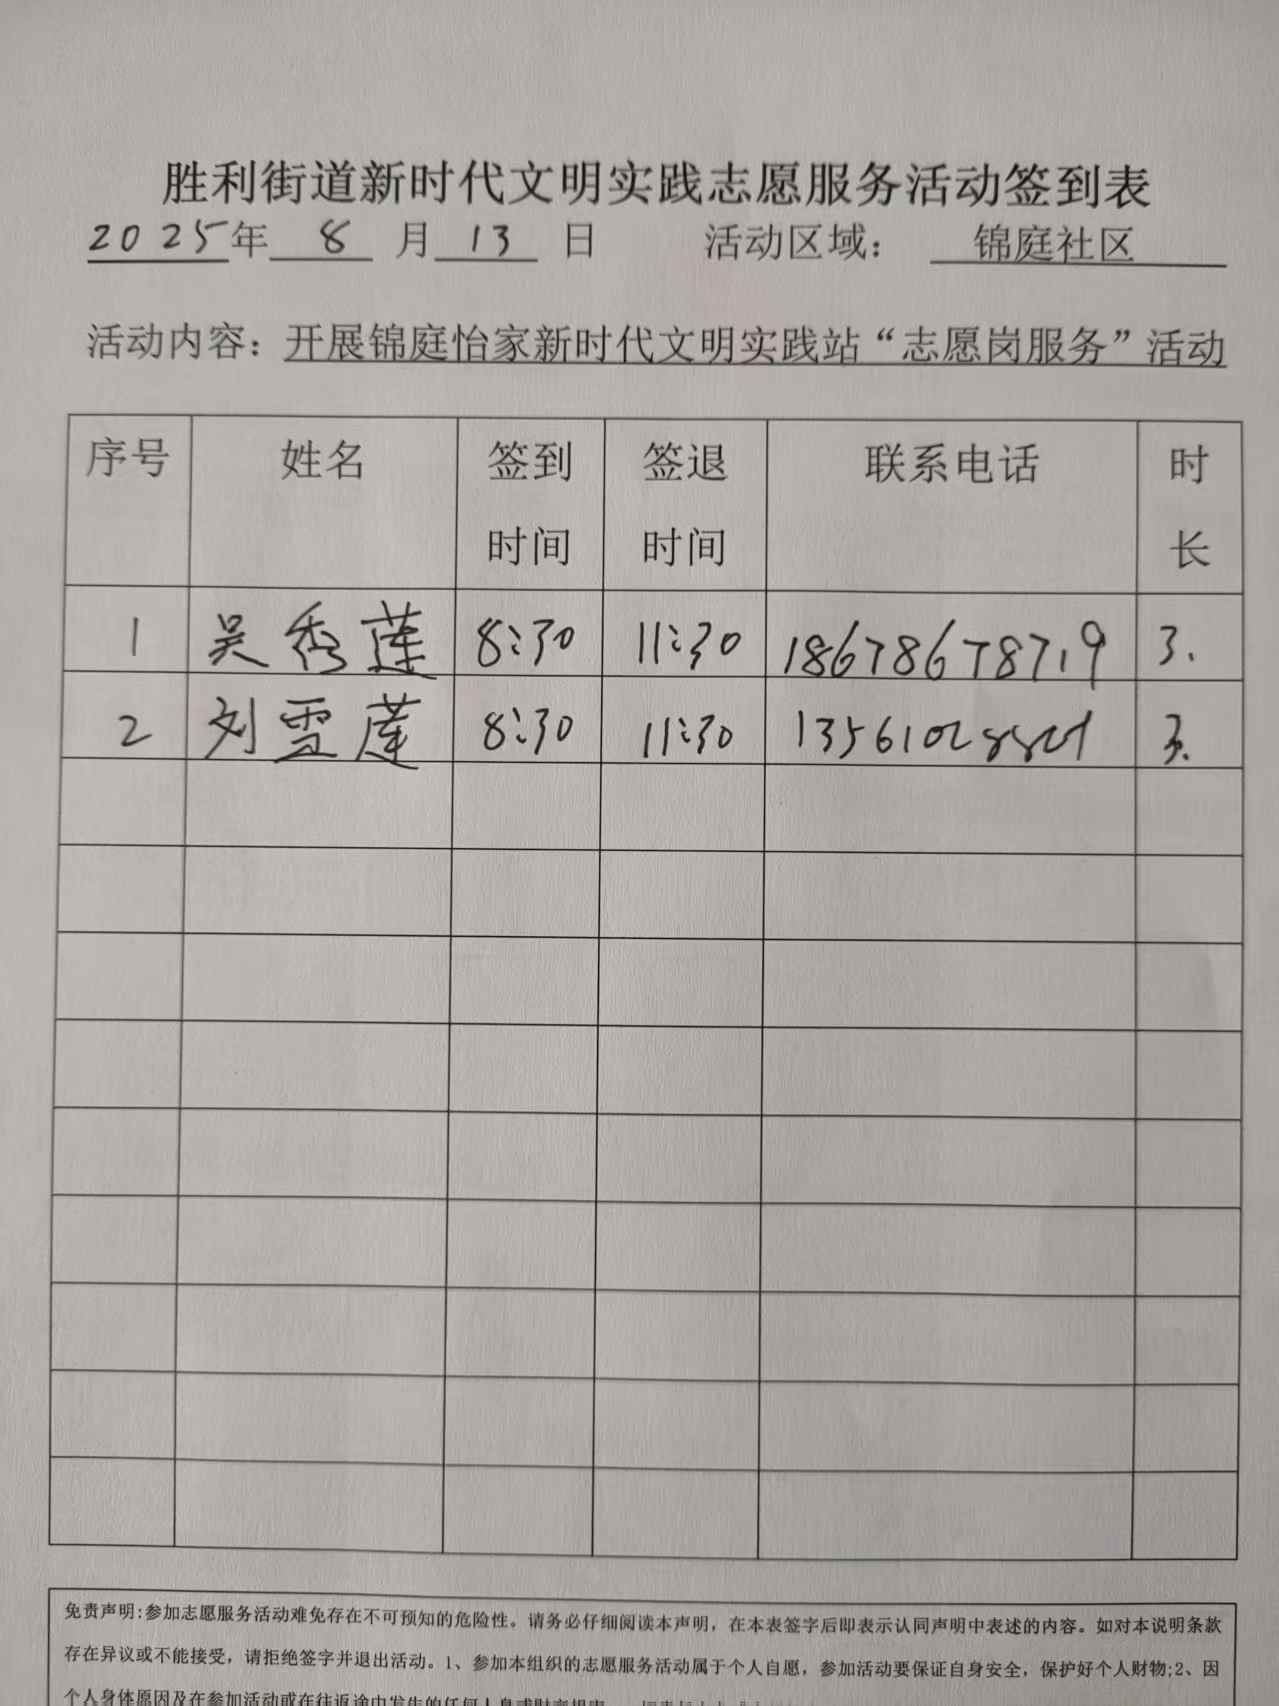 胜利街道新时代文明实践志愿服务活动签到表
2025年 8 月 13 日 活动区域： 锦庭社区
活动内容：开展锦庭怡家新时代文明实践站“志愿岗服务”活动
序号 姓名 签到时间 签退时间 联系电话 时长
1 吴秀莲 8:30 11:30 18678678719 3.
2 刘雪莲 8:30 11:30 3.
免责声明:参加志愿服务活动难免存在不可预知的危险性。请务必仔细阅读本声明，在本表签字后即表示认同声明中表述的内容。如对本说明条款
存在异议或不能接受，请拒绝签字并退出活动。1、参加本组织的志愿服务活动属于个人自愿，参加活动要保证自身安全，保护好个人财物;2、因
个人身体原因及在参加活动或在往返途中发生的任何人身或财产损害